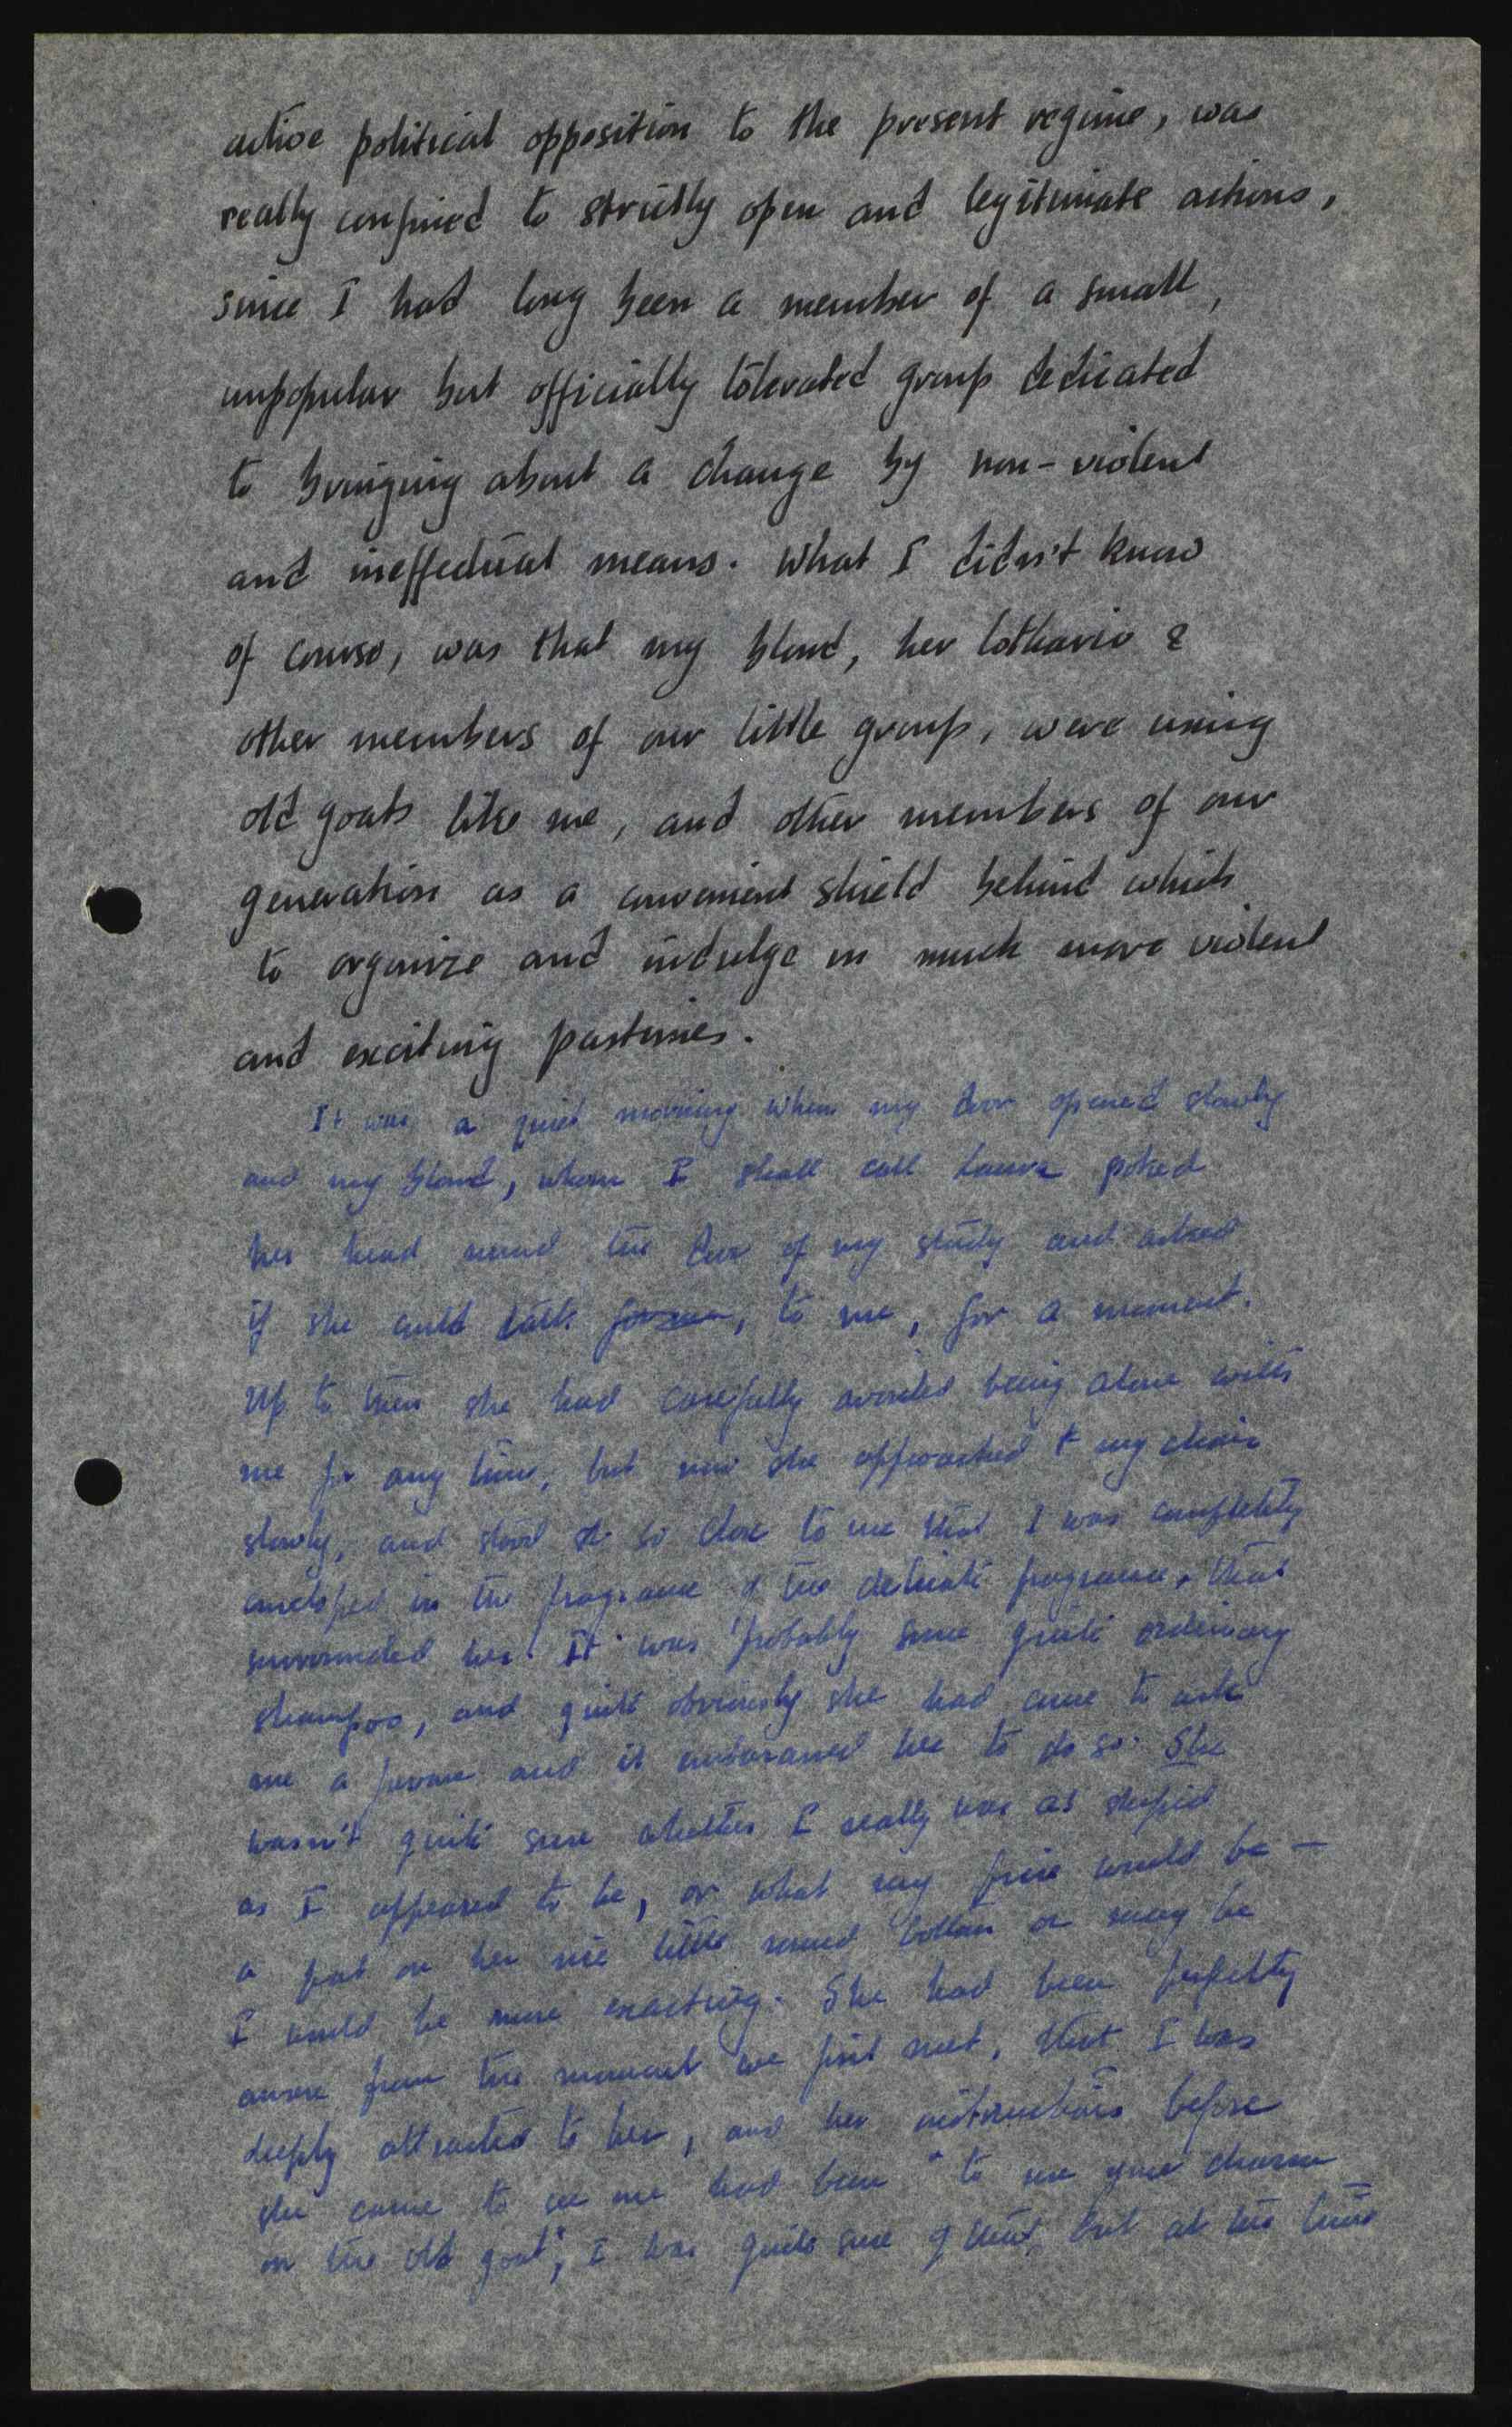 active political opposition to the present regime, was
really confined to strictly open and legitimate actions,
since I had long been a member of a small,
unpopular but officially tolerated group dedicated
to bringing about a change by non-violent
and ineffectual means. What I didn't know
of course, was that my blond, her lothario &
other members of our little group, were using
old goats like me, and other members of our
generation as a convenient shield behind which
to organize and indulge in much more violent
and exciting pastimes.
It was a quiet morning when my door opened slowly
and my blond, whom I shall call Laura poked
her head round the door of my study and asked
if she could talk for me, to me, for a moment.
Up to then she had carefully avoided being alone with
me for any time, but now she approached + my chair
slowly, and stood so close to me that I was completely
enveloped in the fragrance of the delicate fragrance, that
surrounded her. It was probably some quite ordinary
shampoo, and quite obviously she had come to ask
me a favour and it embarrassed her to do so. She
wasn't quite sure whether I really was as stupid
as I appeared to be, or what my price would be —
a pat on her nice little round bottom or may be
I would be more exacting. She had been perfectly
aware from the moment we first met, that I was
deeply attracted to her, and her instructions before
she came to see me had been "to use your charm
on the old goat"; I was quite sure of that, but at the time